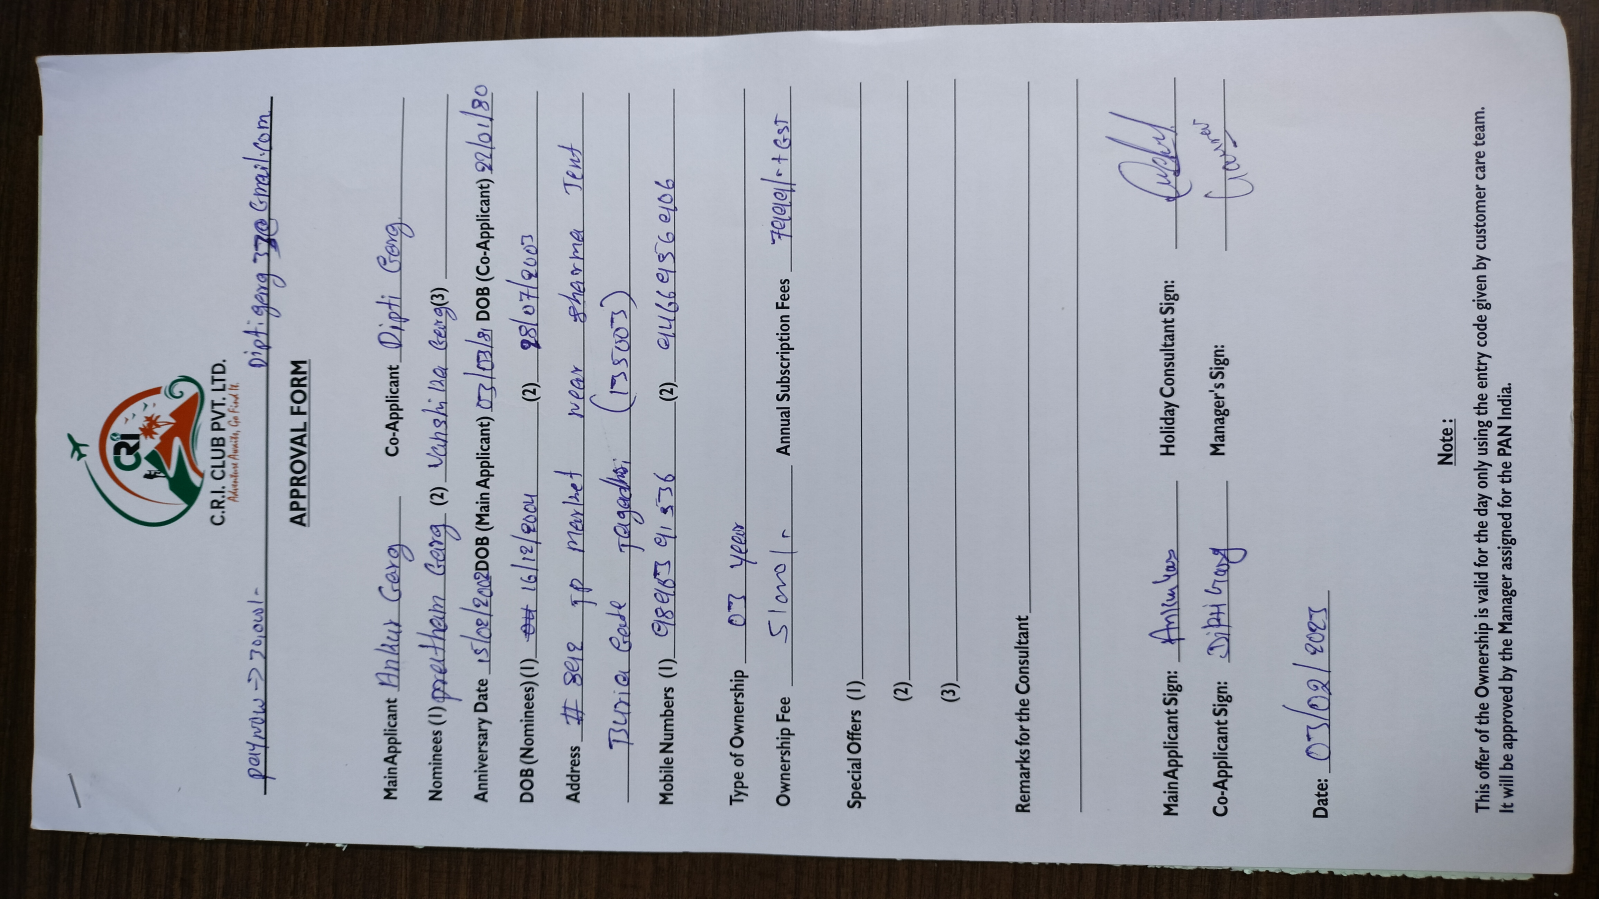 CRI
C.R.I. CLUB PVT. LTD.
Adventure Awaits, Go Find It.
pay now → 30,000/- Diptigarg 33@Gmail.com
APPROVAL FORM
Main Applicant Ankur Garg Co-Applicant Dipti Garg
Nominees (1) pratham Garg (2) Vanshika Garg (3)
Anniversary Date 15/02/2002 DOB (Main Applicant) 03/03/81 DOB (Co-Applicant) 22/01/80
DOB (Nominees) (1) 16/12/2004 (2) 28/07/2003
Address # 892 JP market near sharma Tent
Buria Gate Jagadhri (135003)
Mobile Numbers (1) (2) 9466956906
Type of Ownership 03 year
Ownership Fee 51000/- Annual Subscription Fees 7999/- + GST
Special Offers (1)
(2)
(3)
Remarks for the Consultant
Main Applicant Sign: Holiday Consultant Sign:
Co-Applicant Sign: Dipti Garg Manager's Sign: Gaurav
Date: 03/02/2023
Note :
This offer of the Ownership is valid for the day only using the entry code given by customer care team.
It will be approved by the Manager assigned for the PAN India.